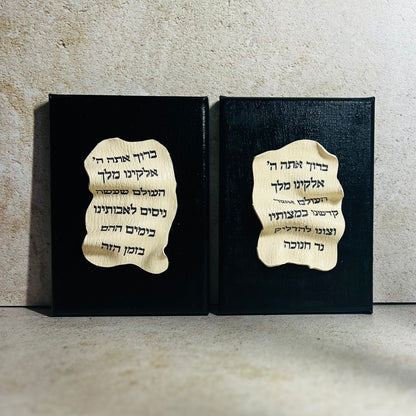 ברוך אתה ה'
אלקינו מלך
העולם אשר
קדשנו במצותיו
וצונו להדליק
נר חנוכה
ברוך אתה ה'
אלקינו מלך
העולם שעשה
ניסים לאבותינו
בימים ההם
בזמן הזה